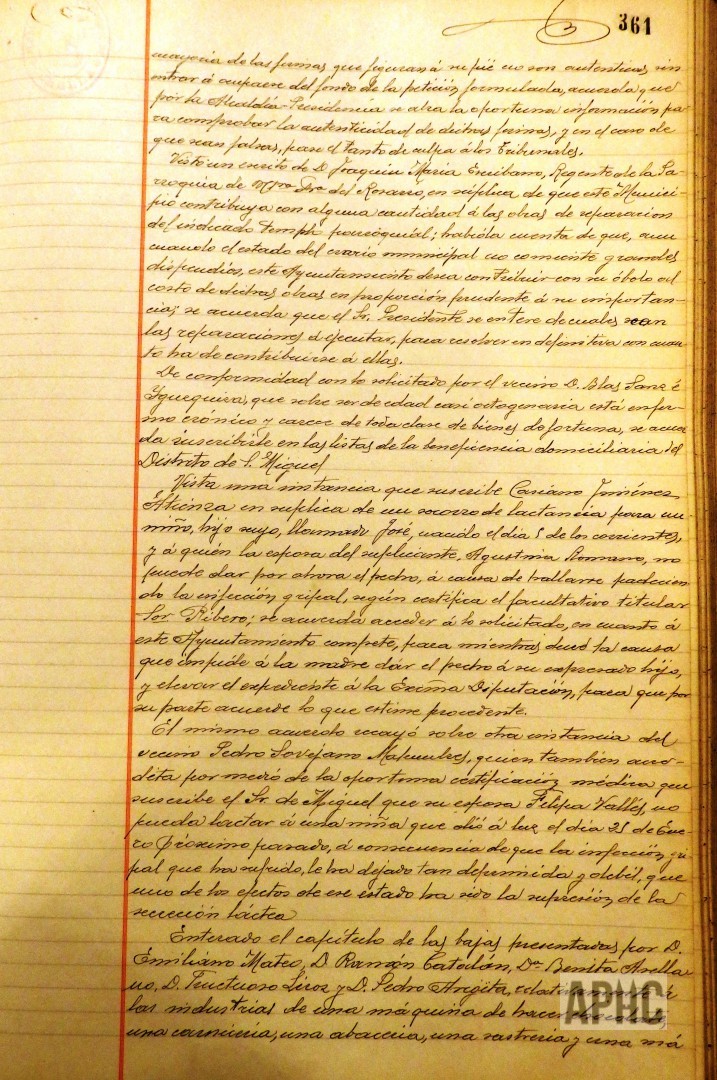 361
mayoría de las firmas que figuran á su pié no son autenticas, sin
entrar á ocuparse del fondo de la petición formulada, acuerda que
por la Alcaldía-Presidencia se abra la oportuna información pa-
ra comprobar la autenticidad de dichas firmas, y en el caso de
que sean falsas, pase el tanto de culpa á los Tribunales.
Visto un escrito de D. Joaquin María Escribano, Regente de la Pa-
rroquia de Ntra Sra del Rosario, en súplica de que este Munici-
pio contribuya con alguna cantidad á las obras de reparación
del indicado templo parroquial; habida cuenta de que, aun
cuando el estado del erario municipal no consiente grandes
dispendios, este Ayuntamiento desea contribuir con su óbolo al
costo de dichas obras en proporción prudente á su importan-
cia; se acuerda que el Sr. Presidente se entere de cuales sean
las reparaciones á ejecutar, para resolver en definitiva con cuan-
to ha de contribuirse á ellas.
De conformidad con lo solicitado por el vecino D. Blas Sanz é
que sobre ser de edad casi octogenaria está enfer-
mo crónico y carece de toda clase de bienes de fortuna, se acuer-
da suscribirle en las listas de la beneficencia domiciliaria del
Distrito de S. Miguel
Vista una instancia que suscribe Casiano Jiménez
Atienza en suplica de un socorro de lactancia para un
niño, hijo suyo, llamado José, nacido el dia 5 de los corrientes,
y á quién la esposa del suplicante, Agustina Romano, no
puede dar por ahora el pecho, á causa de hallarse padecien-
do la infección gripal, según certifica el facultativo titular
Sor. Ribero; se acuerda acceder á lo solicitado, en cuanto á
este Ayuntamiento compete, para mientras dure la causa
que impide á la madre dar el pecho á su expresado hijo,
y elevar el expediente á la Excma Diputación, para que por
su parte acuerde lo que estime procedente.
El mismo acuerdo recayó sobre otra instancia del
vecino Pedro quien también acre-
dita por medio de la oportuna certificación médica que
suscribe el Sr. de Miguel que su esposa Felipa Vallés, no
pueda lactar á una niña que dió á luz el día 25 de Ene-
ro próximo pasado, á consecuencia de que la infección gri-
pal que ha sufrido, le ha dejado tan deprimida y debil, que
uno de los efectos de ese estado ha sido la supresión de la
secreción láctea
Enterado el capítulo de las bajas presentadas por D.
Emiliano Mateo, D. Ramón Catalán, Da. Benita Arella-
no, D. Fructuoso Liroz y D. Pedro Argita, á
las industrias de una máquina de hacer chocolate
una carnicería, una abacería, una sastrería y una má
APHC